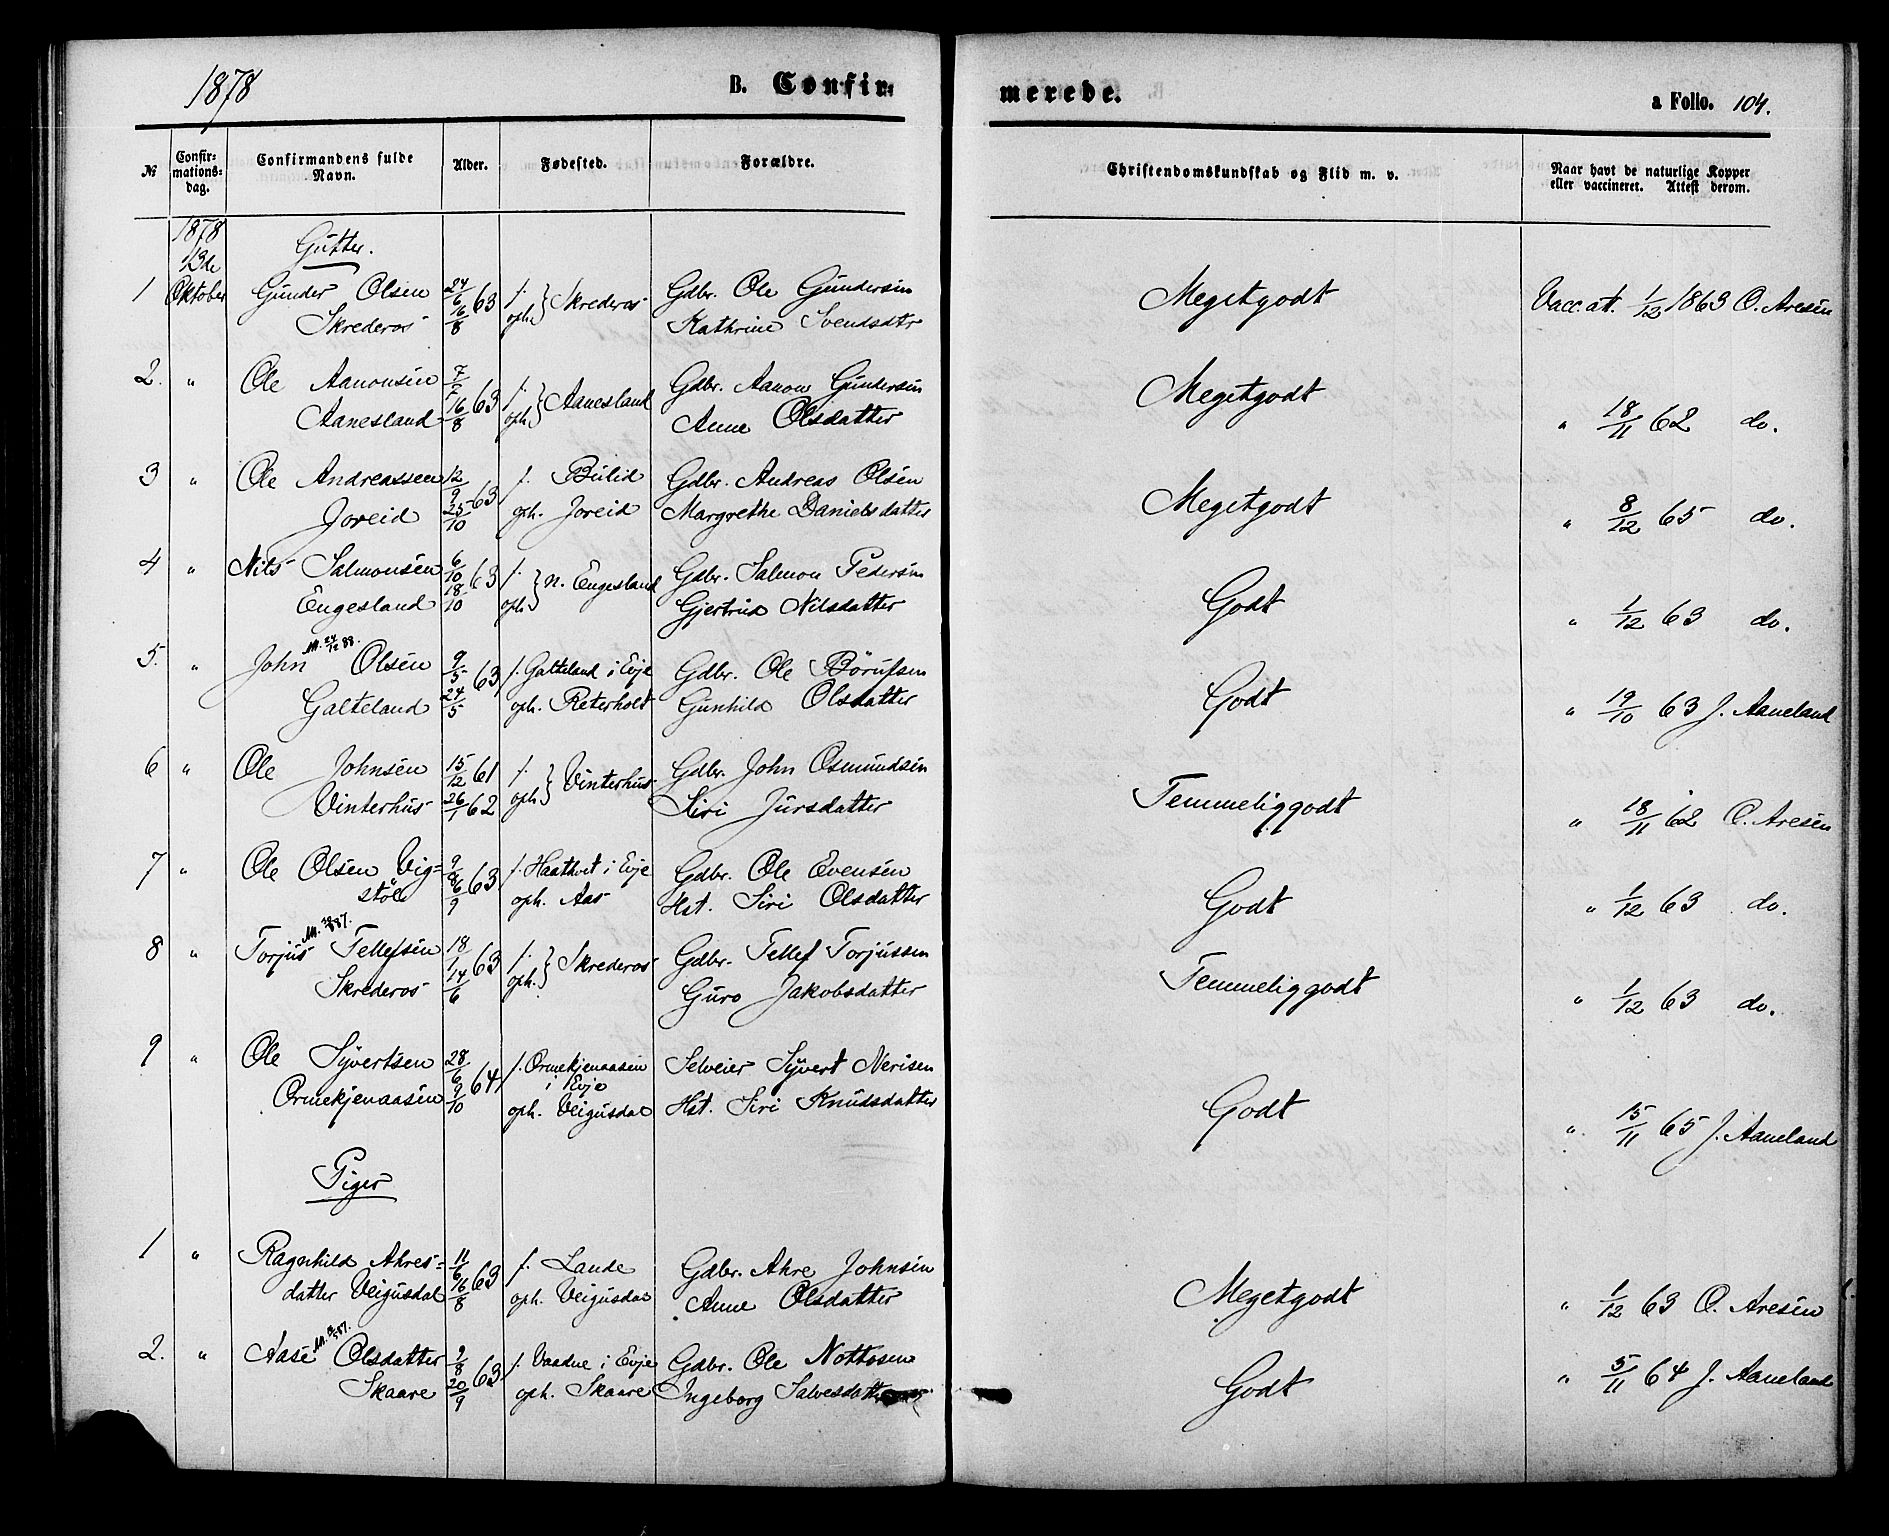 1878
B. Confir-
merede.
a Folio. 104.
№
Confir-
mations-
dag.
Confirmandens fulde
Navn.
Alder.
Fødested.
Forældre.
Christendomskundskab og Flid m. v.
Naar havt de naturlige Kopper
eller vaccineret. Attest derom.
1878
13de
Gutter.
1 Oktober Gunder Olsen 24/6 63 f. } Skrederos Gdbr. Ole Gundersen Megetgodt Vacc. att. 1/12 1863 O. Aresen
Skrederos 16/8 oph. Kathrine Svendsdtr
2. " Ole Aanonsen 7/7 63 f. } Aanesland Gdbr. Aanon Gundersen Megetgodt " 18/11 62 do.
Aanesland 16/8 oph. Anne Olsdatter
3 " Ole Andreassen 12/9 63 f. Bulid Gdbr. Andreas Olsen Megetgodt " 8/12 65 do.
Joreid 25/10 oph. Joreid Margrethe Danielsdatter
4 " Nils Salmonsen 6/10 63 f. } n. Engesland Gdbr. Salmon Pedersen Godt " 1/12 63 do.
Engesland 18/10 oph. Gjertrud Nilsdatter
M. 24/12 88.
5. " John Olsen 9/5 63 f. Galteland i Evje Gdbr. Ole Börufsen Godt " 19/10 63 J. Aaneland
Galteland 24/5 oph. Reterholt Gunhild Olsdatter
6 " Ole Johnsen 15/12 61 f. } Vinterhus Gdbr. John Osmundsen Temmeliggodt " 18/11 62 O. Aresen
Vinterhus 26/1 62 oph. Siri Jursdatter
7 " Ole Olsen Vig= 9/8 63 f. Haathvet i Evje Gdbr. Ole Evensen Godt " 1/12 63 do.
støl 6/9 oph. Aas Hst. Siri Olsdatter
8 " Torjus Tellefsen 18/1 63 f. } Skrederos Gdbr. Tellef Torjussen Temmeliggodt " 1/12 63 do.
Skrederos 14/6 oph. Guro Jakobsdatter
9 " Ole Syvertsen 28/6 64 f. Ormekjenaasen Selveier Syvert Nerisen Godt " 15/11 65 J. Aaneland
i Evje
Ormekjenaasen 9/10 oph. Veigusdal Hst. Siri Knudsdatter
Piger
1 " Ragnhild Ahres= 11/6 63 f. Lande Gdbr. Ahre Johnsen Megetgodt " 1/12 63 O. Aresen
datter Veigusdal 16/8 oph. Veigusdal Anne Olsdatter
2. " Aase Olsdatter 9/8 63 f. Vaadne i Evje Gdbr. Ole Nottosen Godt " 5/11 64 J. Aaneland
Skaare 20/9 oph. Skaare Ingeborg Salvesdatter